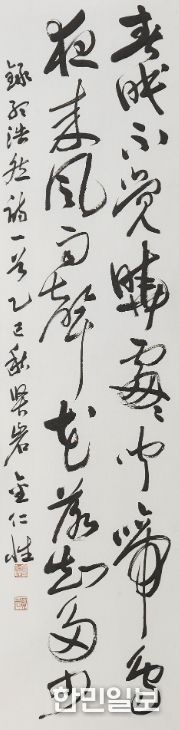 春眠不覺曉處々聞啼鳥
夜來風雨聲花落知多少
錄孟浩然詩一首乙巳秋賢岩金仁性
한민일보